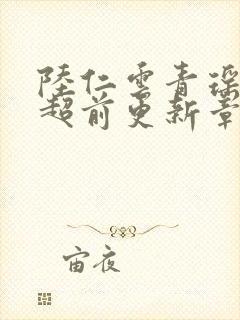 陸仁雲青瑶
超前更新章
宙夜